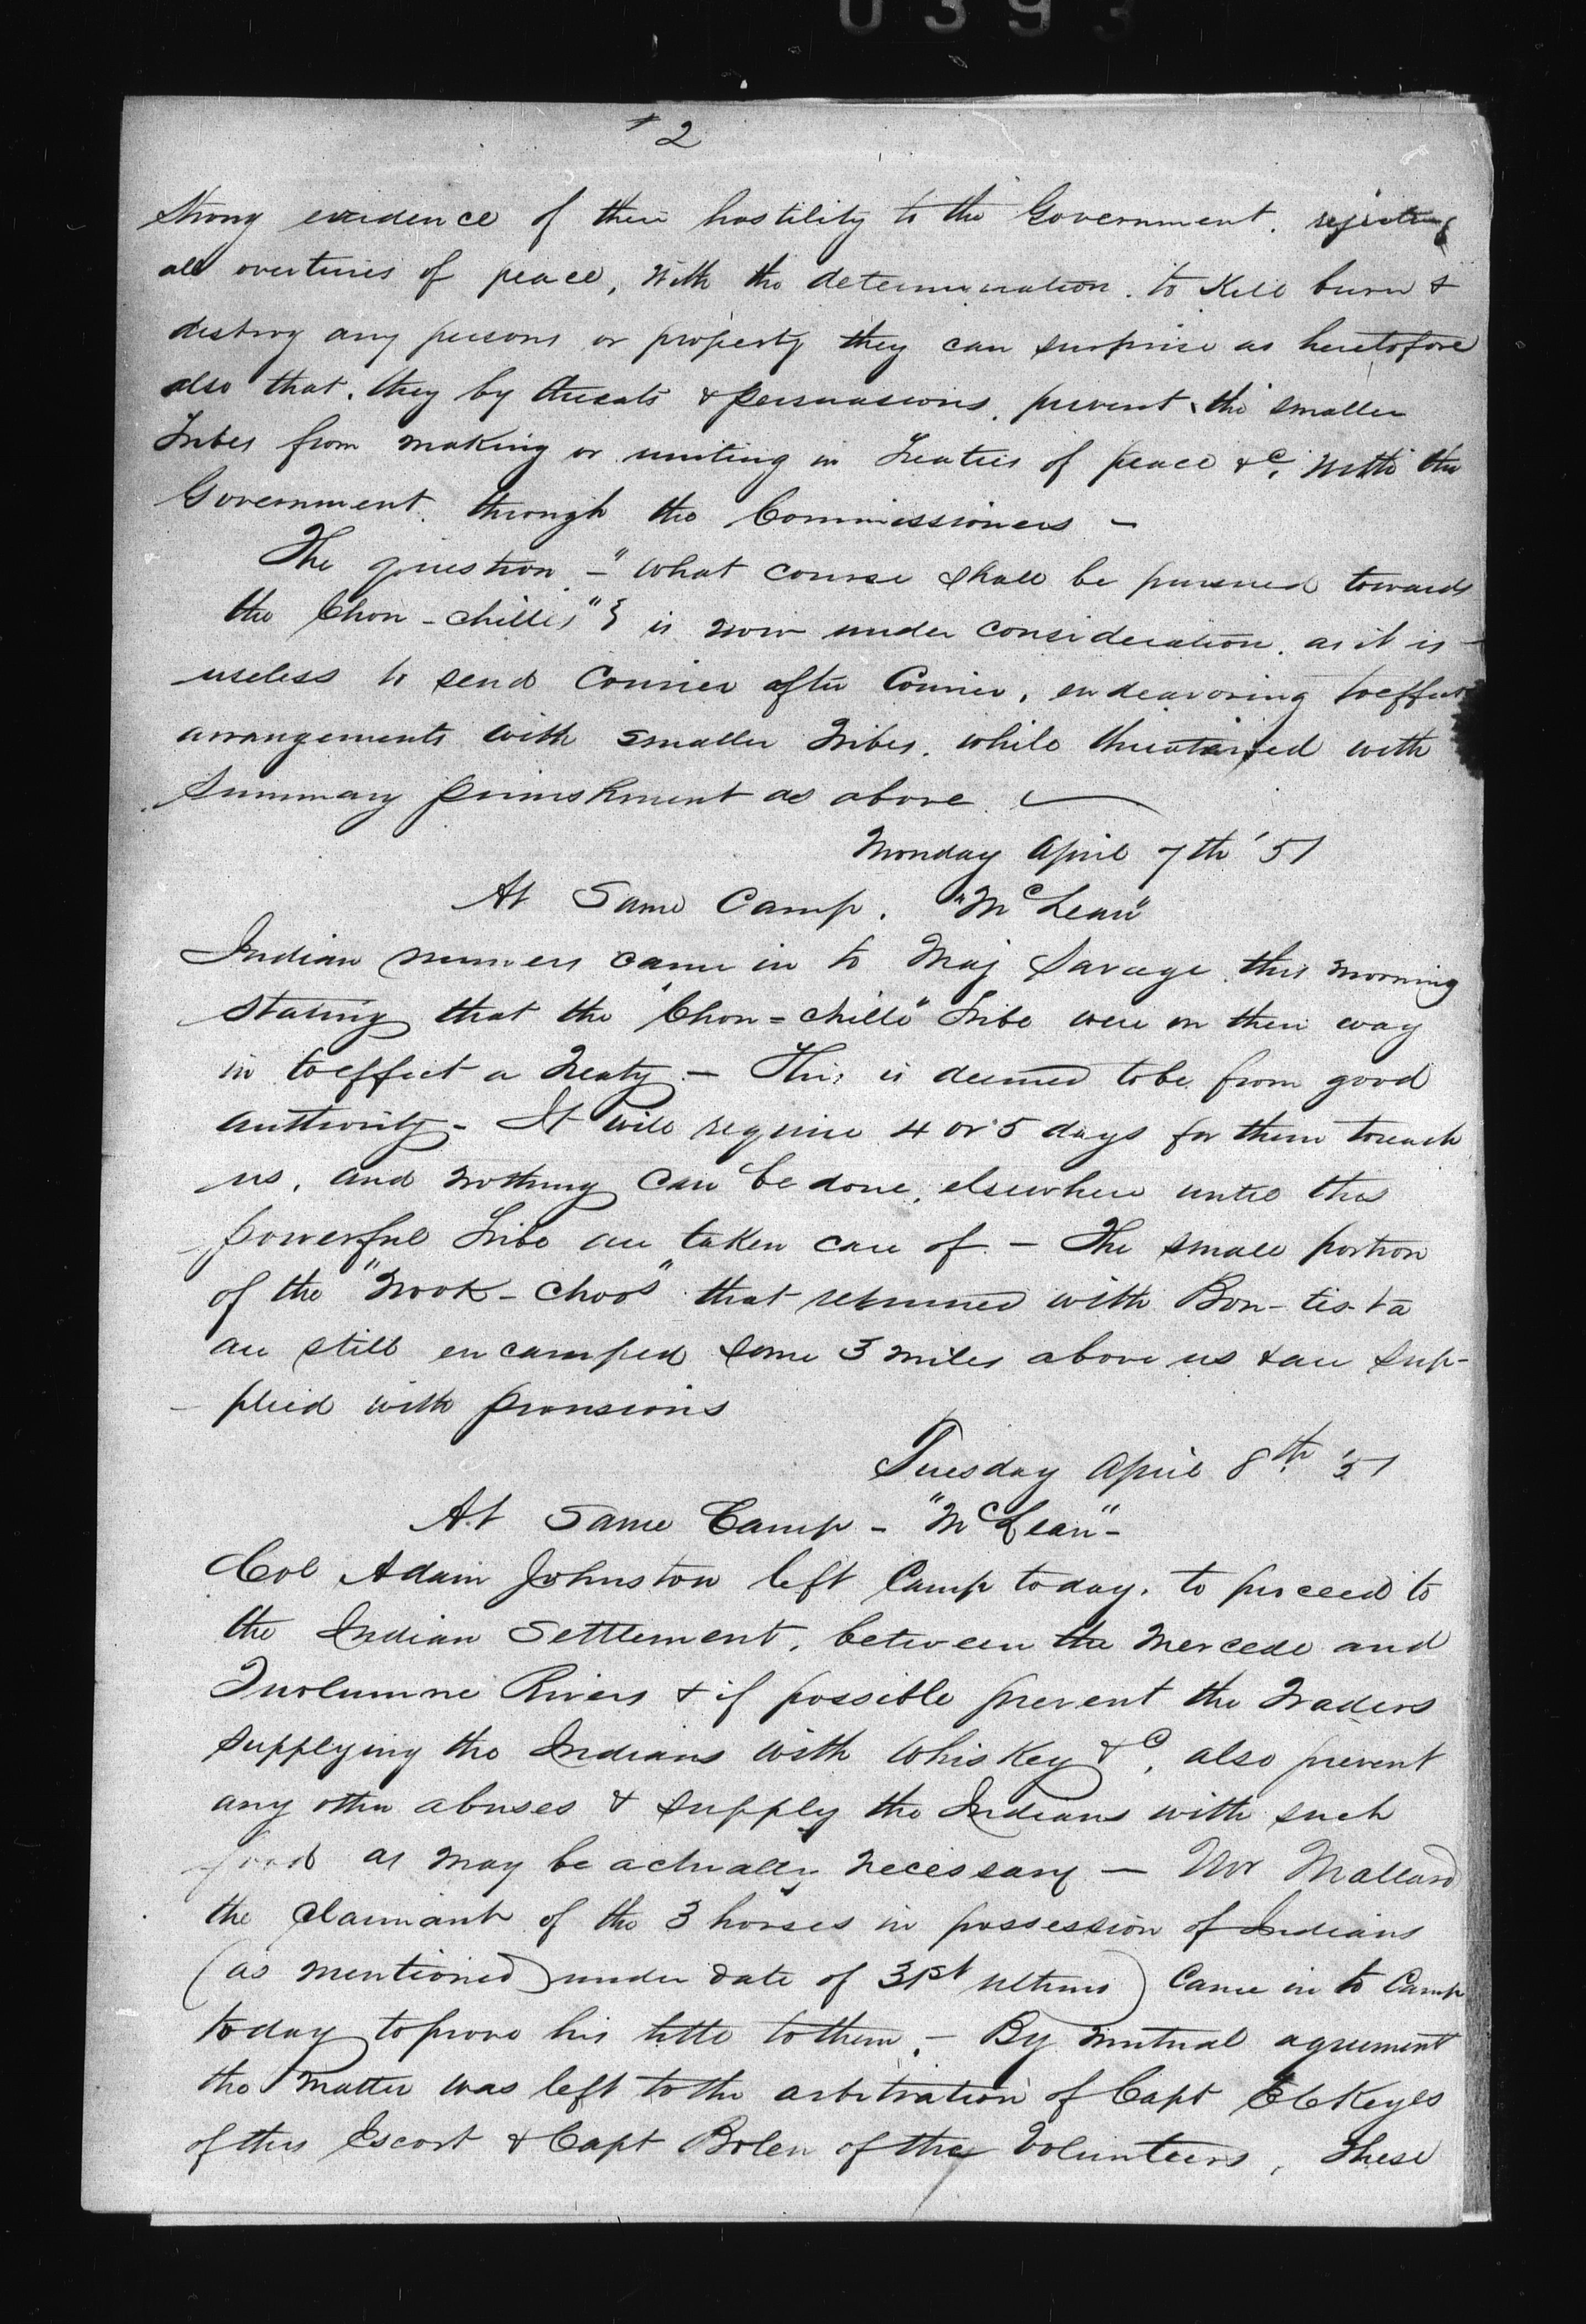 0393
2
strong evidence of their hostility to the Government. rejecting
all overtures of peace, with the determination. to kill burn &
destroy any persons or property they can surprise as heretofore
also that. they by threats & persuasions. prevent the smaller
Tribes from making or uniting in Treaties of peace &c, with the
Government. through the Commissioners -
The question - "what course shall be pursued towards
the Chon-chillis" } is now under consideration. as it is -
useless to send Courier after Courier, endeavoring to effect
arrangements with smaller Tribes. while threatened with
summary punishment as above.
Monday April 7th '51
At Same Camp. "McLean"
Indian runners came in to Maj Savage this morning
stating that the "Chon=chille" Tribe were on their way
in to effect a Treaty - This is deemed to be from good
authority - It will require 4 or 5 days for them to reach
us, and nothing can be done, elsewhere until this
powerful Tribe are taken care of. - The small portion
of the "Nook-choos" that returned with Bon-tis-ta
are still encamped some 3 miles above us & are sup-
-plied with provisions
Tuesday April 8th '51
At Same Camp - "McLean" -
Col Adam Johnston left Camp today. to proceed to
the Indian Settlement, between the Mercede and
Tuolumne Rivers & if possible prevent the Traders
supplying the Indians with whiskey &c, also prevent
any other abuses & supply the Indians with such
food as may be actually necessary - Mr Mallard
the claimant of the 3 horses in possession of Indians
(as mentioned under date of 31st ultimo) Came in to Camp
today to prove his title to them. - By mutual agreement
the matter was left to the arbitration of Capt E C Keyes
of this Escort & Capt Bolen of the Volunteers, These